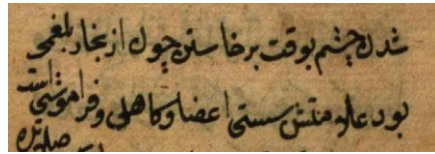 شدن چشم بوقت برخاستن چون از بخار بلغمی
بود علامتش سستی اعضا و کاهلی و فراموشی است